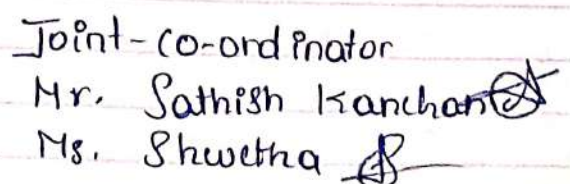 Joint-co-ordinator
Mr. Sathish Kanchan
Ms. Shwetha